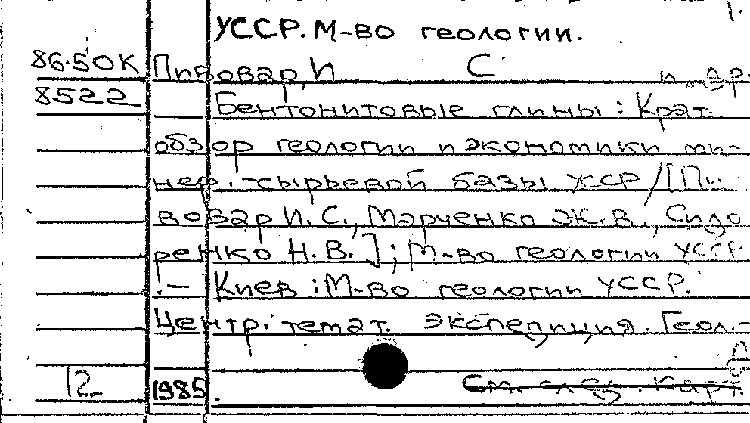 УССР. М-во геологии.
86.50К Пивовар, И С и др.
8522 Бентонитовые глины : Крат.
обзор геологии и экономики ми-
нер.-сырьевой базы УССР / [Пи-
вовар И. С., Марченко Ж. В., Сидо
ренко Н. В.] ; М-во геологии УССР.
.— Киев : М-во геологии УССР.
Центр. темат. экспедиция. Геол.-
12 1985. См. след. карт.